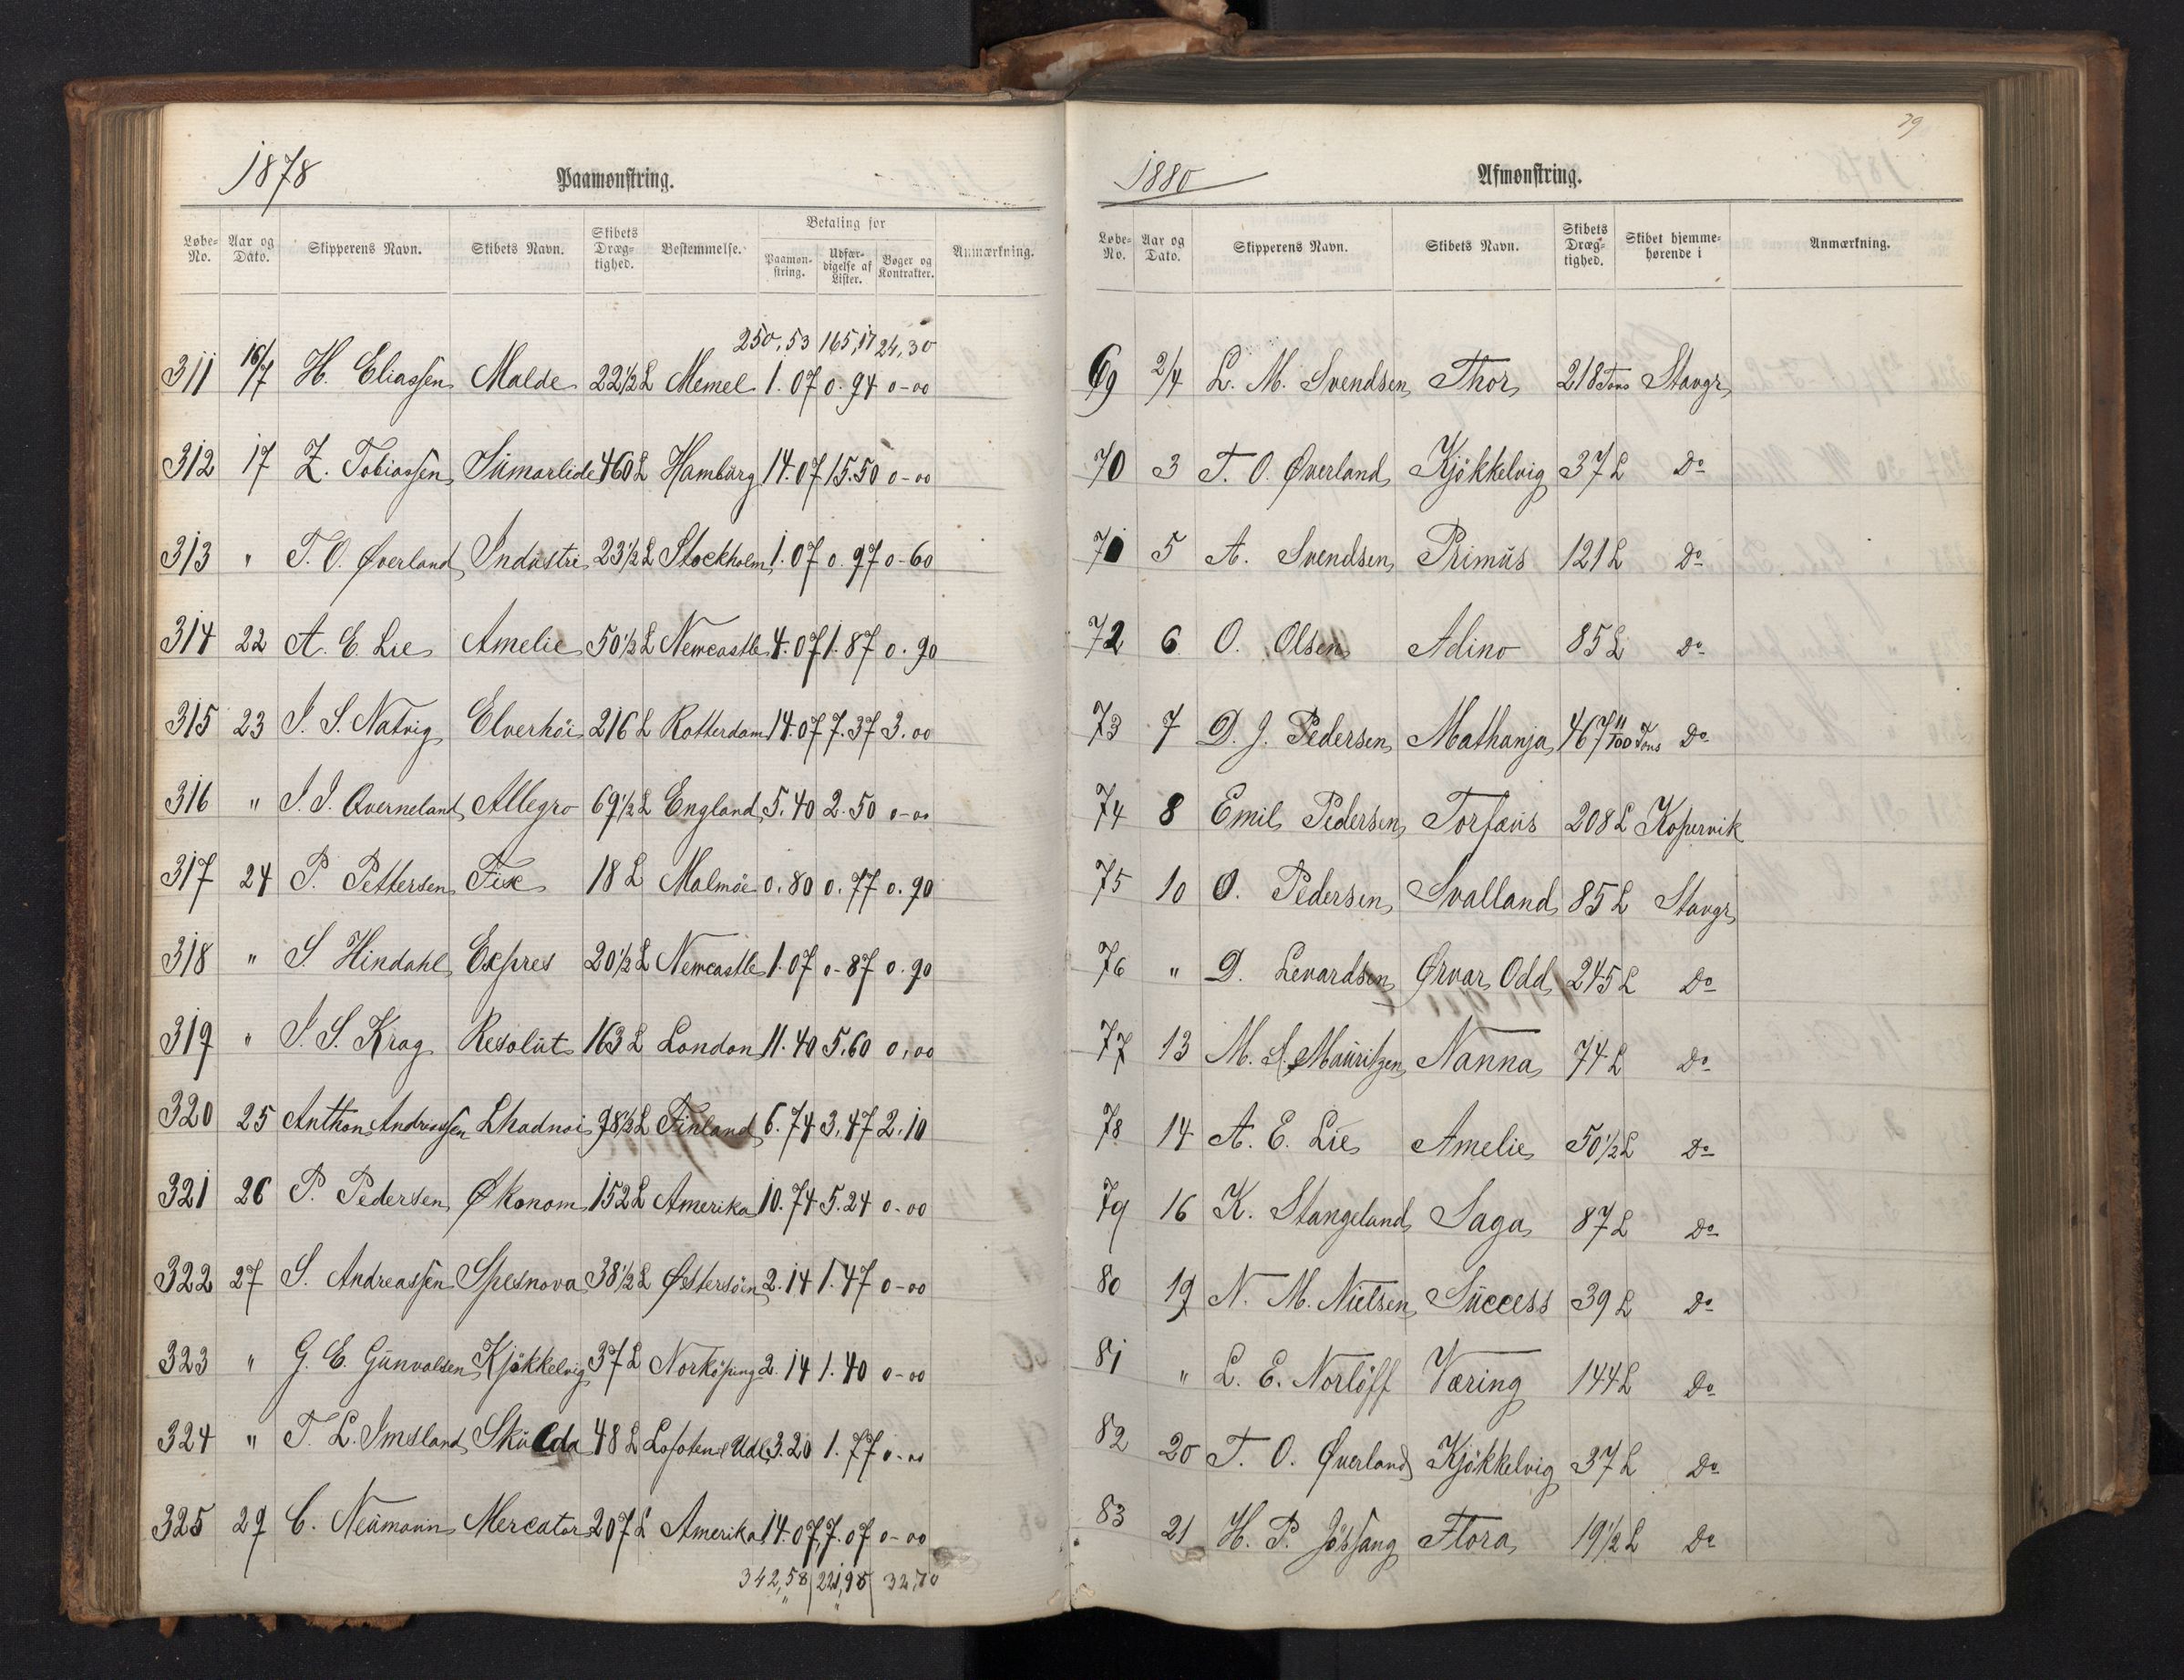 1878
Paamønstring.
Løbe-No. Aar og Dato. Skipperens Navn. Skibets Navn. Skibets Dræg-tighed. Bestemmelse. Betaling for Paamøn-string. Udfær-digelse af Lister. Bøger og Kontrakter. Anmærkning.
250,53 165,17 24,30
311 16/7 H. Eliassen Malde 22 1/2 L Memel 1.07 0.94 0-00
312 17 Z. Tobiassen Sumarlide 460 L Hamburg 14.07 15.50 0-00
313 " T. O. Øverland Industri 23 1/2 L Stockholm 1.07 0.97 0-60
314 22 A. E. Lie Amelie 50 1/2 L Newcastle 4.07 1.87 0.90
315 23 I. S. Natvig Elverhöi 216 L Rotterdam 14.07 7.37 3.00
316 " I. I. Qverneland Allegro 69 1/2 L England 5.40 2.50 0-00
317 24 P. Pettersen Fix 18 L Malmöe 0.80 0.77 0.90
318 " S. Hindahl Expres 20 1/2 L Newcastle 1.07 0-87 0.90
319 " I. S. Krag Resolut 163 L London 11.40 5.60 0.00
320 25 Anthon Andreassen 98 1/2 L Finland 6.74 3.47 2.10
321 26 P. Pedersen Økonom 152 L Amerika 10.74 5.24 0-00
322 27 S. Andreassen Spesnova 38 1/2 L Østersöen 2.14 1.47 0-00
323 " G. E. Gunvaldsen Kjökkelvig 37 L Norköping 2.14 1.40 0-00
324 " T. L. Imsland Skulda 48 L Lofoten & Udl. 3.20 1.77 0-00
325 29 C. Neumann Mercator 207 L Amerika 14.07 7.07 0-00
342,58 221,98 32,70
79
1880
Afmønstring.
Løbe-No. Aar og Dato. Skipperens Navn. Skibets Navn. Skibets Dræg-tighed. Skibet hjemme-hørende i Anmærkning.
69 2/4 L. M. Svendsen Thor 218 Tons Stavgr
70 3 T. O. Øverland Kjökkelvig 37 L Do
71 5 A. Svendsen Primus 121 L Do
72 6 O. Olsen Adino 85 L Do
73 7 D. J. Pedersen Mathanja 467 11/100 Tons Do
74 8 Emil Pedersen Torfæus 208 L Kopervik
75 10 O. Pedersen Svalland 85 L Stavgr
76 " D. Levardsen Ørvar Odd 245 L Do
77 13 M. S. Mauritzen Nanna 74 L Do
78 14 A. E. Lie Amelie 50 1/2 L Do
79 16 K. Stangeland Saga 87 L Do
80 19 N. M. Nielsen Success 39 L Do
81 " L. E. Norlöff Væring 144 L Do
82 20 T. O. Øverland Kjökkelvig 37 L Do
83 21 H. P. Jössang Flora 19 1/2 L Do